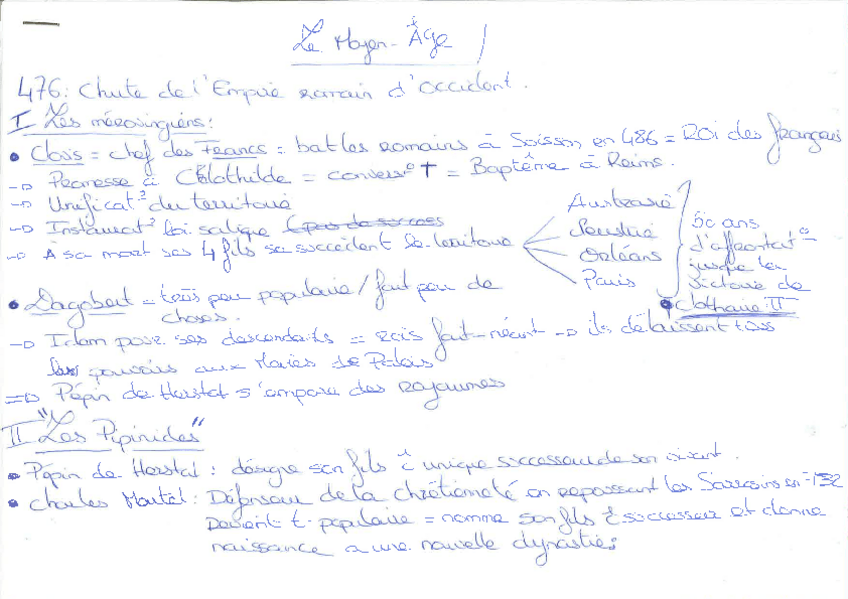 Le Moyen-Âge
476: Chute de l'Empire romain d'Occident.
I Les mérovingiens:
• Clovis = chef des Francs = bat les romains à Soisson en 486 = Roi des français
→ Promesse à Clothilde = convers° † = Baptême à Reims.
→ Unificat° du territoire
→ Instaurat° loi salique
→ A sa mort ses 4 fils se succèdent le territoire
Austrasie
Neustrie
Orléans
Paris
50 ans
d'affrontat°
jusque la
victoire de
• Clothaire II
• Dagobert = très peu populaire / fait peu de
choses.
→ Idem pour ses descendants = rois fait-néant → ils délaissent tous
les pouvoirs aux Maires de Palais
⇒ Pépin de Herstal s'empare des royaumes
II "Les Pipinides"
• Pépin de Herstal : désigne son fils unique successeur de son vivant.
• Charles Martel : Défenseur de la chrétienneté en repoussant les Sarrasins en 732
Devient t. populaire = nomme son fils successeur et donne
naissance a une nouvelle dynastie: